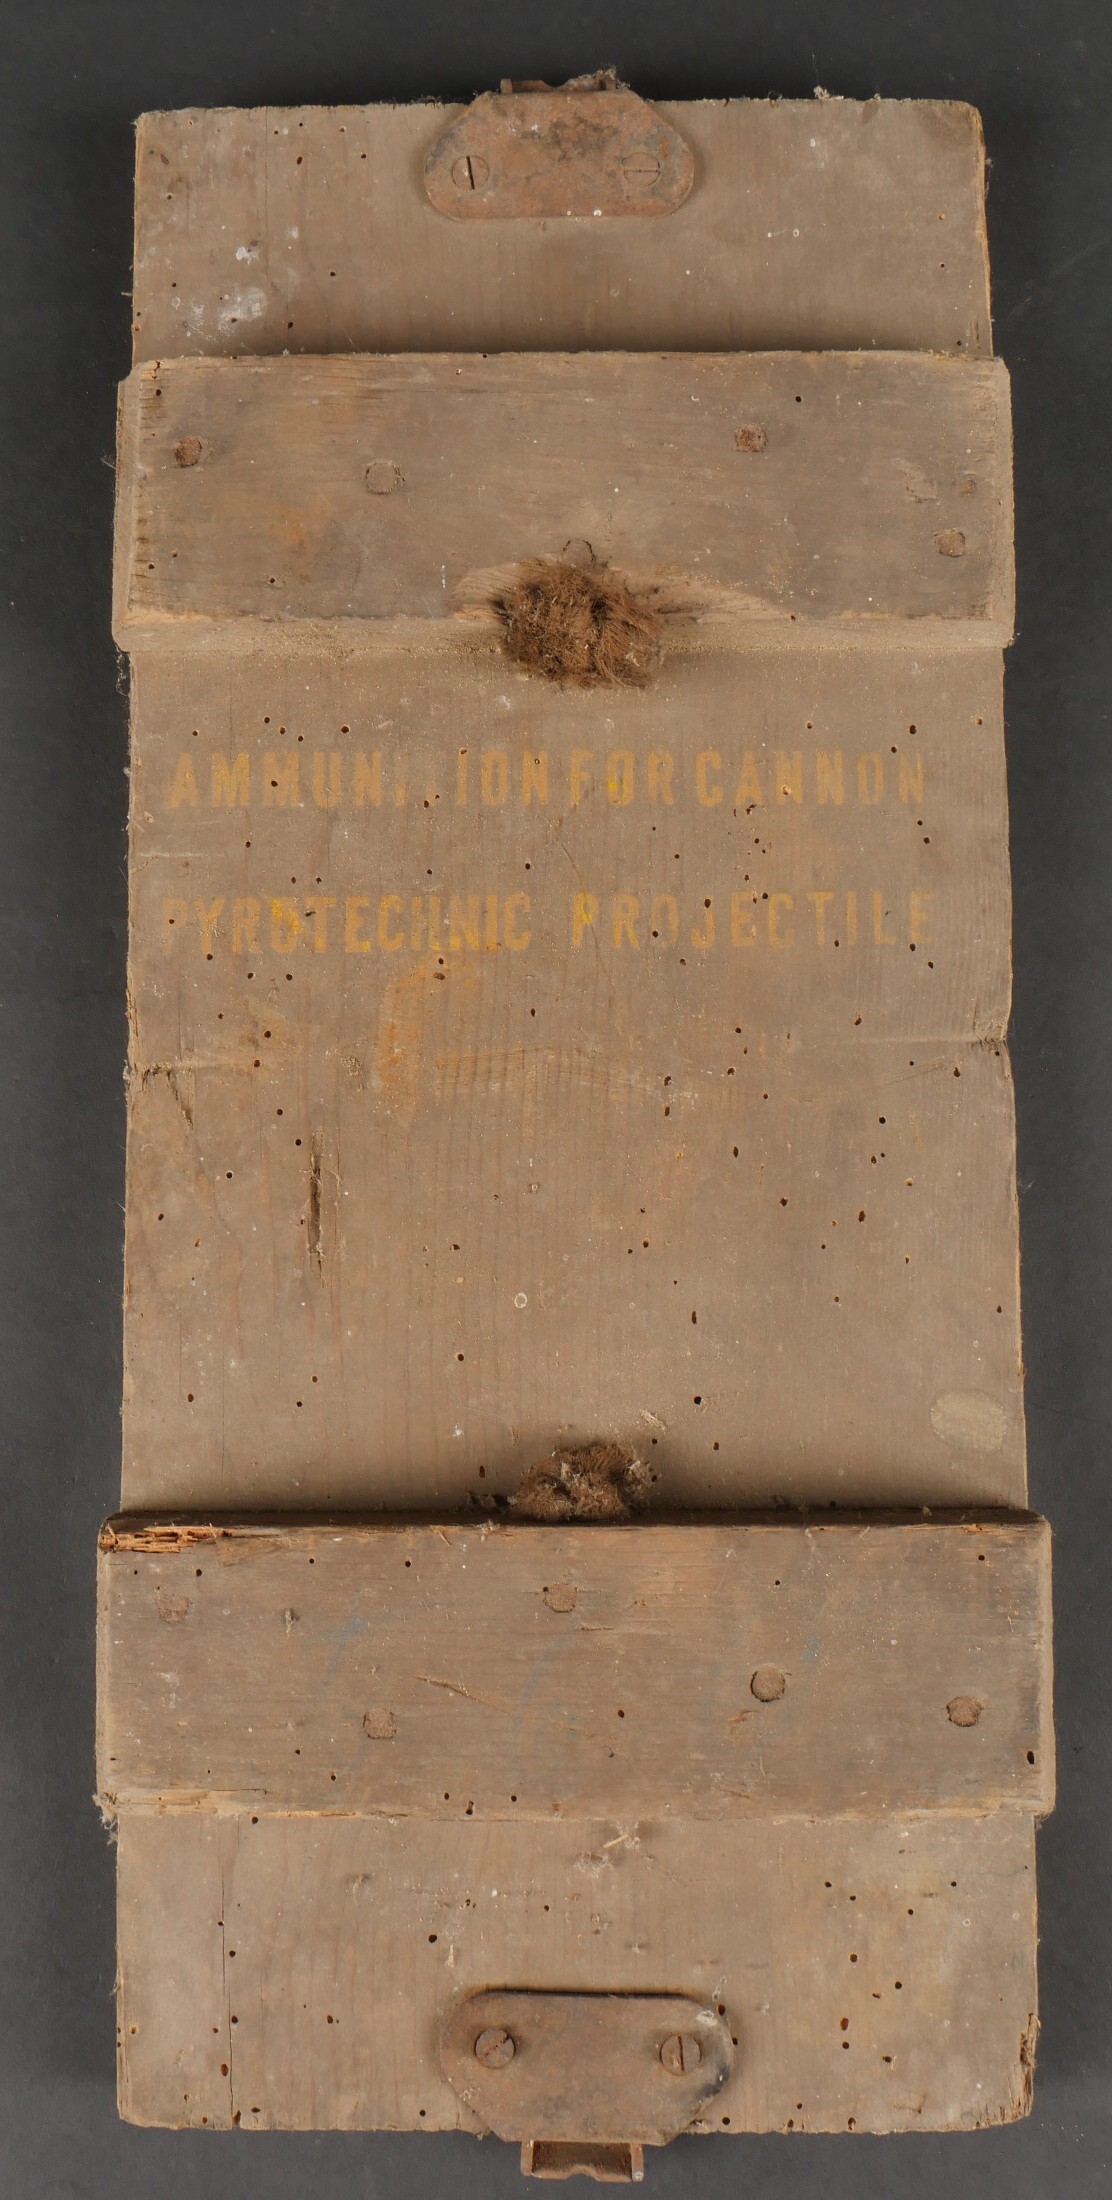 AMMUNITION FOR CANNON
PYROTECHNIC PROJECTILE